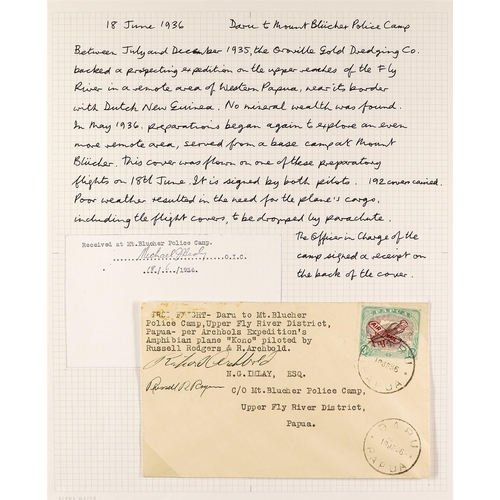 18 June 1936 Daru to Mount Blücher Police Camp
Between July and December 1935, the Oroville Gold Dredging Co.
backed a prospecting expedition on the upper reaches of the Fly
River in a remote area of Western Papua, near its border
with Dutch New Guinea. No mineral wealth was found.
In May 1936, preparations began again to explore an even
more remote area, served from a base camp at Mount
Blücher. This cover was flown on one of these preparatory
flights on 18th June. It is signed by both pilots. 192 covers carried.
Poor weather resulted in the need for the plane's cargo,
including the flight covers, to be dropped by parachute.
The Officer in Charge of the
camp signed a receipt on
the back of the cover.
Received at Mt. Blucher Police Camp.
O.I.C.
18/6/1936.
FIRST FLIGHT- Daru to Mt. Blucher
Police Camp, Upper Fly River District,
Papua- per Archbols Expedition's
Amphibian plane "Kono" piloted by
Russell Rodgers & R. Archbold.
Richard Archbold
Russell R. Rogers
N.G. IMLAY, ESQ.
C/O Mt. Blucher Police Camp,
Upper Fly River District,
Papua.
PAPUA
PAPUA
DARU
PAPUA